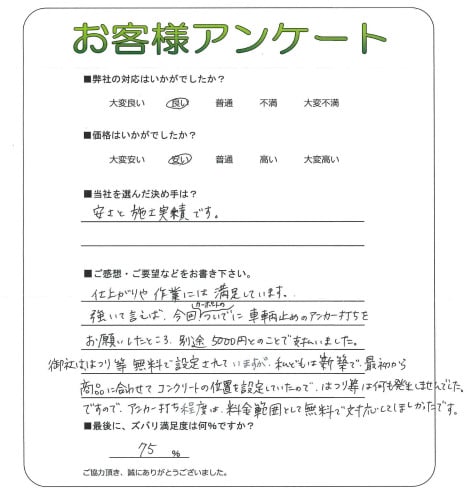 お客様アンケート
■弊社の対応はいかがでしたか?
大変良い 良い 普通 不満 大変不満
■価格はいかがでしたか?
大変安い 安い 普通 高い 大変高い
■当社を選んだ決め手は?
安さと施工実績です。
■ご感想・ご要望などをお書き下さい。
仕上がりや作業には満足しています。
カーポートの
強いて言えば、今回ついでに車輌止めのアンカー打ちを
お願いしたところ、別途5000円とのことで支払いました。
御社ははつり等無料で設定されていますが、私どもは新築で、最初から
商品に合わせてコンクリートの位置を設定していたので、はつり等は何も発生しませんでした。
ですので、アンカー打ち程度は、料金範囲として無料で対応してほしかったです。
■最後に、ズバリ満足度は何%ですか?
75 %
ご協力頂き、誠にありがとうございました。